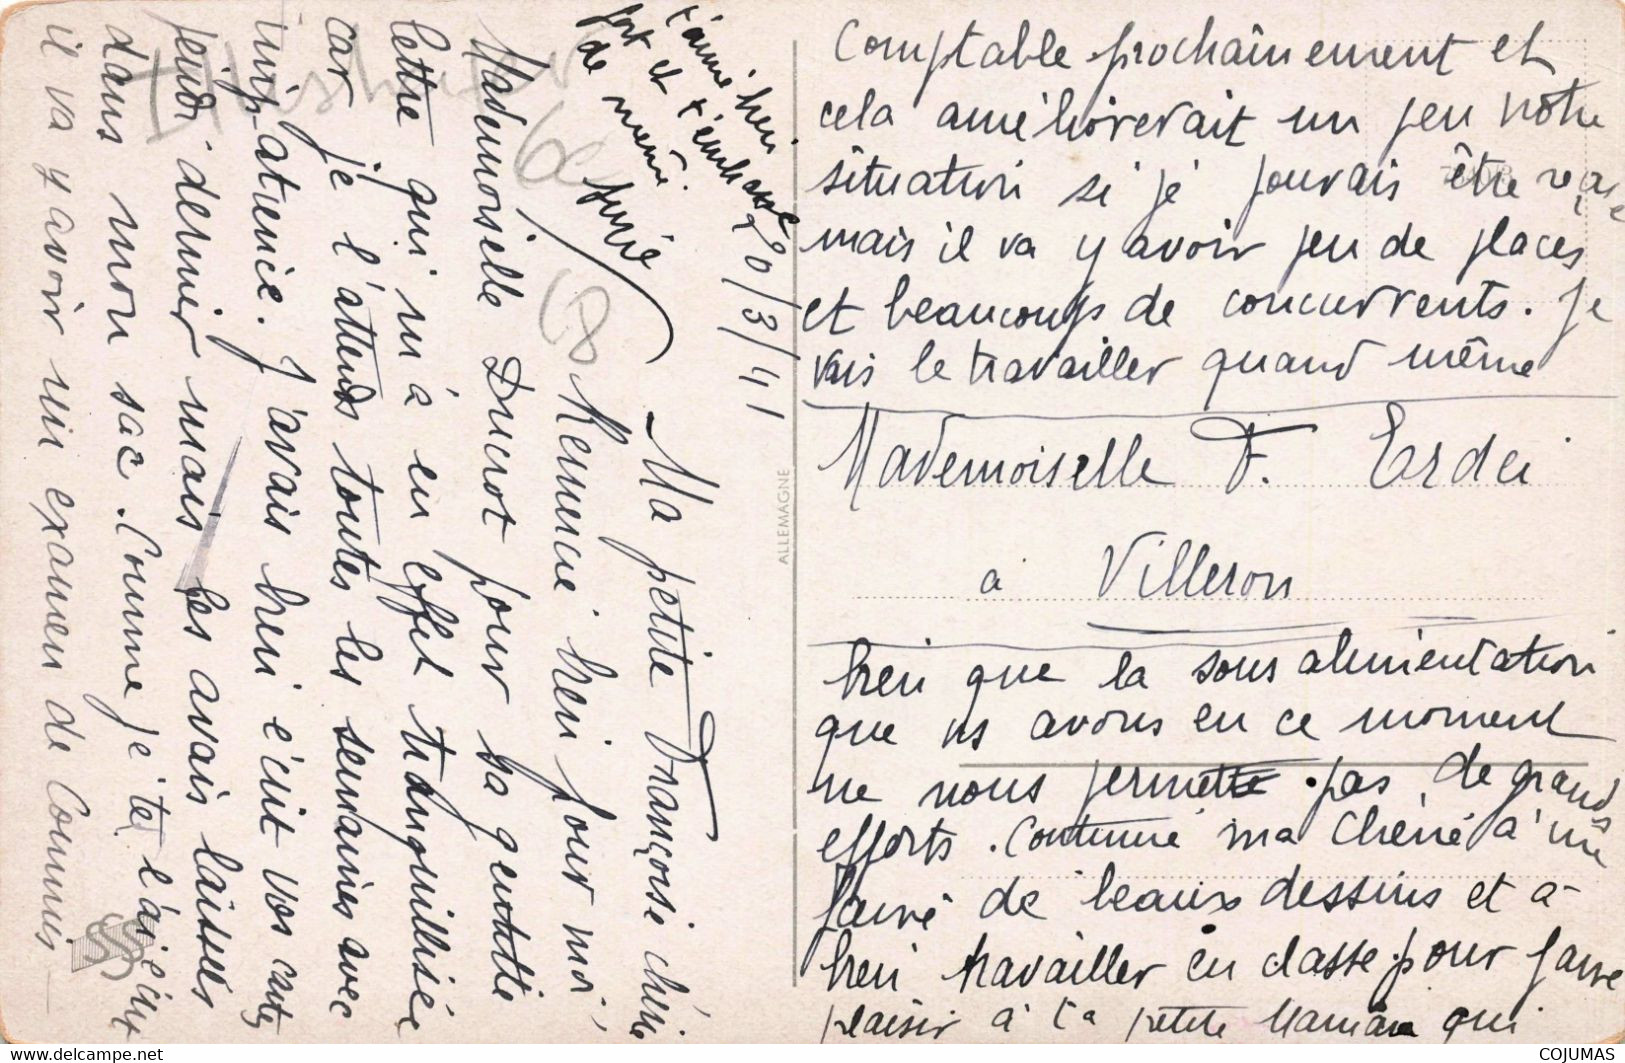 20/3/41
Ma petite Françoise chérie
Remercie bien pour moi,
Mademoiselle Ducrot pour sa gentille
lettre qui m'a en effet tranquillisée
car je l'attends toutes les semaines avec
impatience. J'avais bien écrit vos cartes
jeudi dernier mais les avais laissées
dans mon sac. Comme je te l'ai écrit
il va y avoir un examen de Commis
Comptable prochainement et
cela améliorerait un peu notre
situation si je pouvais être reçue
mais il va y avoir peu de places
et beaucoups de concurrents. Je
vais le travailler quand même
Mademoiselle F. Erdei
à Villeron
bien que la sous alimentation
que ns avons en ce moment
ne nous permette pas de grands
efforts. Continue ma chérie à me
faire de beaux dessins et à
bien travailler en classe pour faire
plaisir à ta petite Maman qui
t'aime bien
fort et t'embrasse
de même.
ALLEMAGNE
COJUMAS